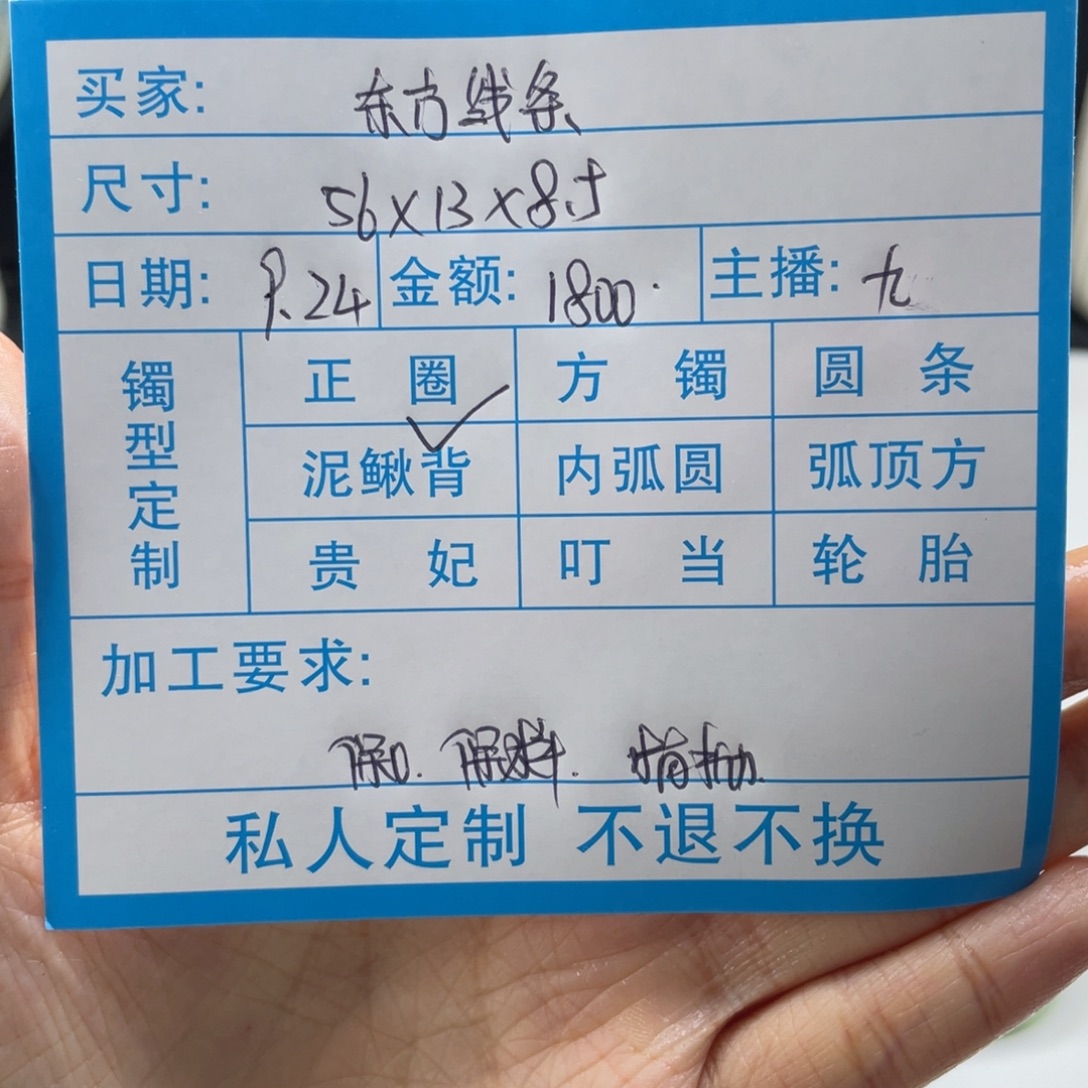 买家: 东方线条
尺寸: 56×13×8.5
日期: 9.24 金额: 1800. 主播: 九
镯型定制
正圈 方镯 圆条
泥鳅背 内弧圆 弧顶方
贵妃 叮当 轮胎
加工要求:
保口. 保料. 精抛.
私人定制 不退不换